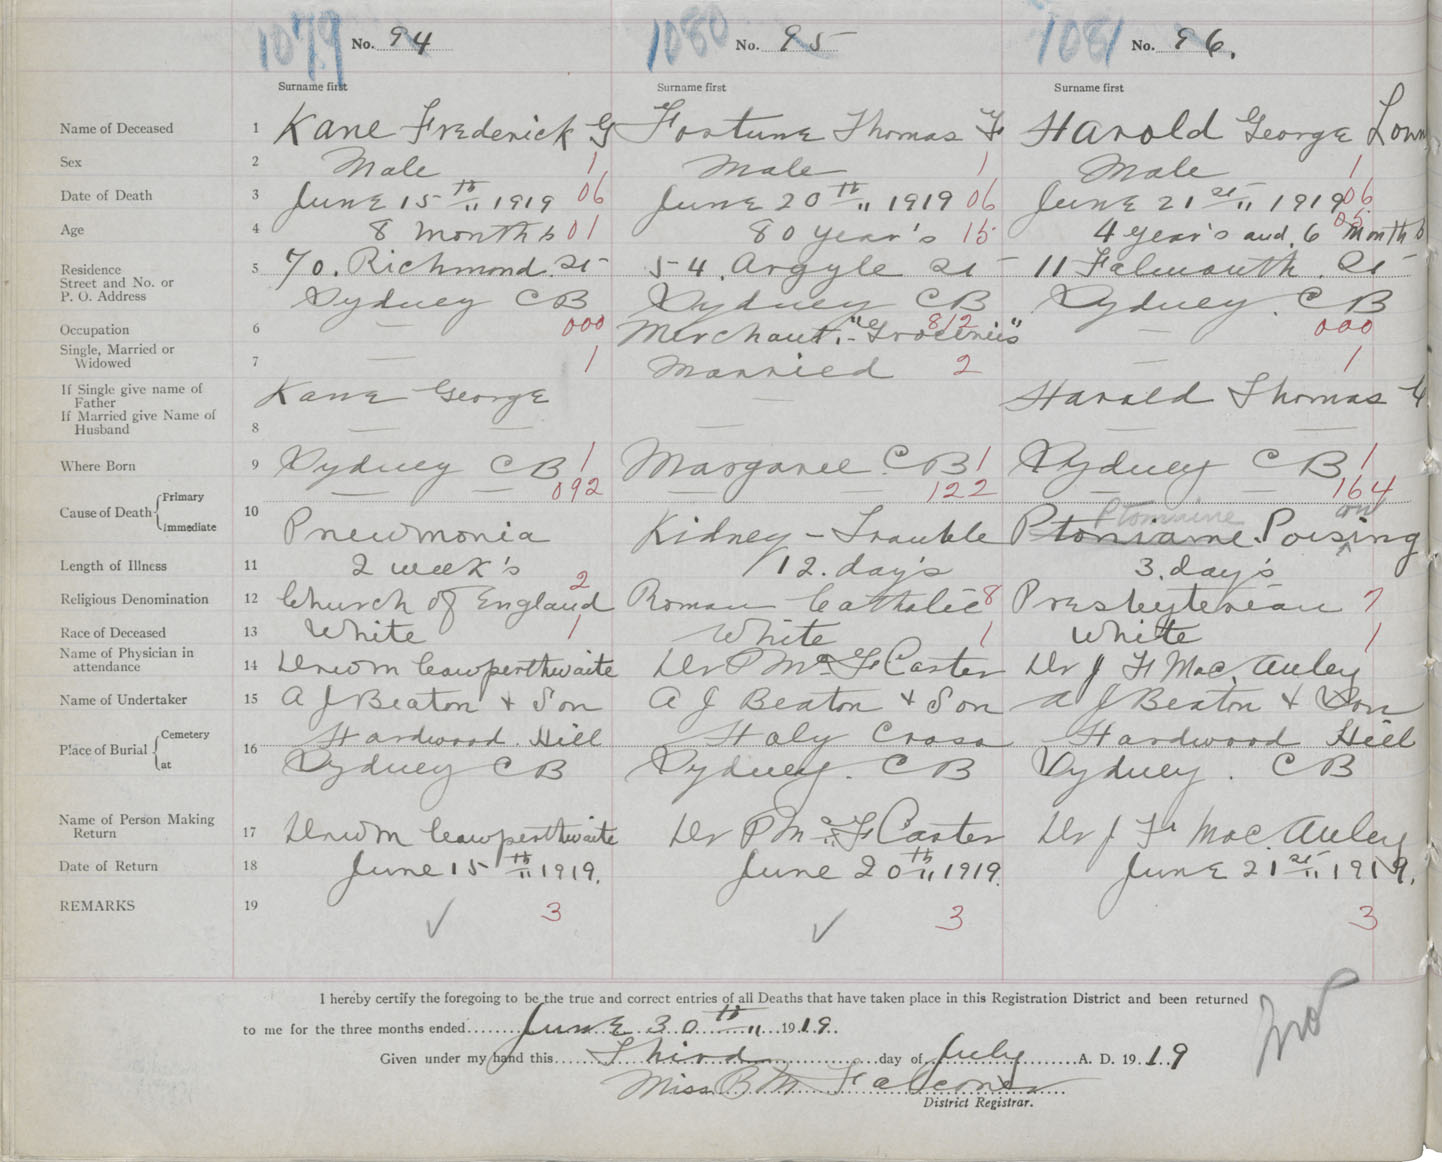 1079 No. 94 1080 No. 95 1081 No. 96.
Surname first Surname first Surname first
Name of Deceased 1 Kane Frederick G Fortune Thomas F Harold George
Sex 2 Male 1 Male 1 Male 1
Date of Death 3 June 15th 1919 06 June 20th 1919 06 June 21st 1919 06
Age 4 8 Months 01 80 year's 15 4 year's and 6 Months 05
Residence Street and No. or P. O. Address 5 70. Richmond. St 54. Argyle St 11 Falmouth. St
Sydney C B Sydney C B Sydney. C B
Occupation 6 — 000 Merchant.- "Groceries" 812 — 000
Single, Married or Widowed 7 — 1 Married 2 — 1
If Single give name of Father Kane George — Harold Thomas
If Married give Name of Husband 8 — — — — —
Where Born 9 Sydney C B 1 Margaree C B 1 Sydney C B 1
Cause of Death Primary — — 092 — — 122 — — 164
Immediate 10 Pneumonia Kidney - Trouble Ptoniame Ptomaine Poising on
Length of Illness 11 2 week's 12. day's 3. day's
Religious Denomination 12 Church of England 2 Roman Catholic 8 Presbyterian 7
Race of Deceased 13 White 1 White 1 White 1
Name of Physician in attendance 14 Dr W M Cowperthwaite Dr P Mc F Carter Dr J F Mac. Auley
Name of Undertaker 15 A J Beaton + Son A J Beaton + Son A J Beaton + Son
Place of Burial Cemetery 16 Hardwood. Hill Holy Cross Hardwood Hill
at Sydney C B Sydney. C B Sydney. C B
Name of Person Making Return 17 Dr W M Cowperthwaite Dr P Mc F Carter Dr J F Mac. Auley
Date of Return 18 June 15th 1919. June 20th 1919. June 21st 1919.
REMARKS 19 ✓ 3 ✓ 3 3
I hereby certify the foregoing to be the true and correct entries of all Deaths that have taken place in this Registration District and been returned
to me for the three months ended June 30th 1919.
Given under my hand this Third day of July A. D. 1919
Miss B M Falconer
District Registrar.